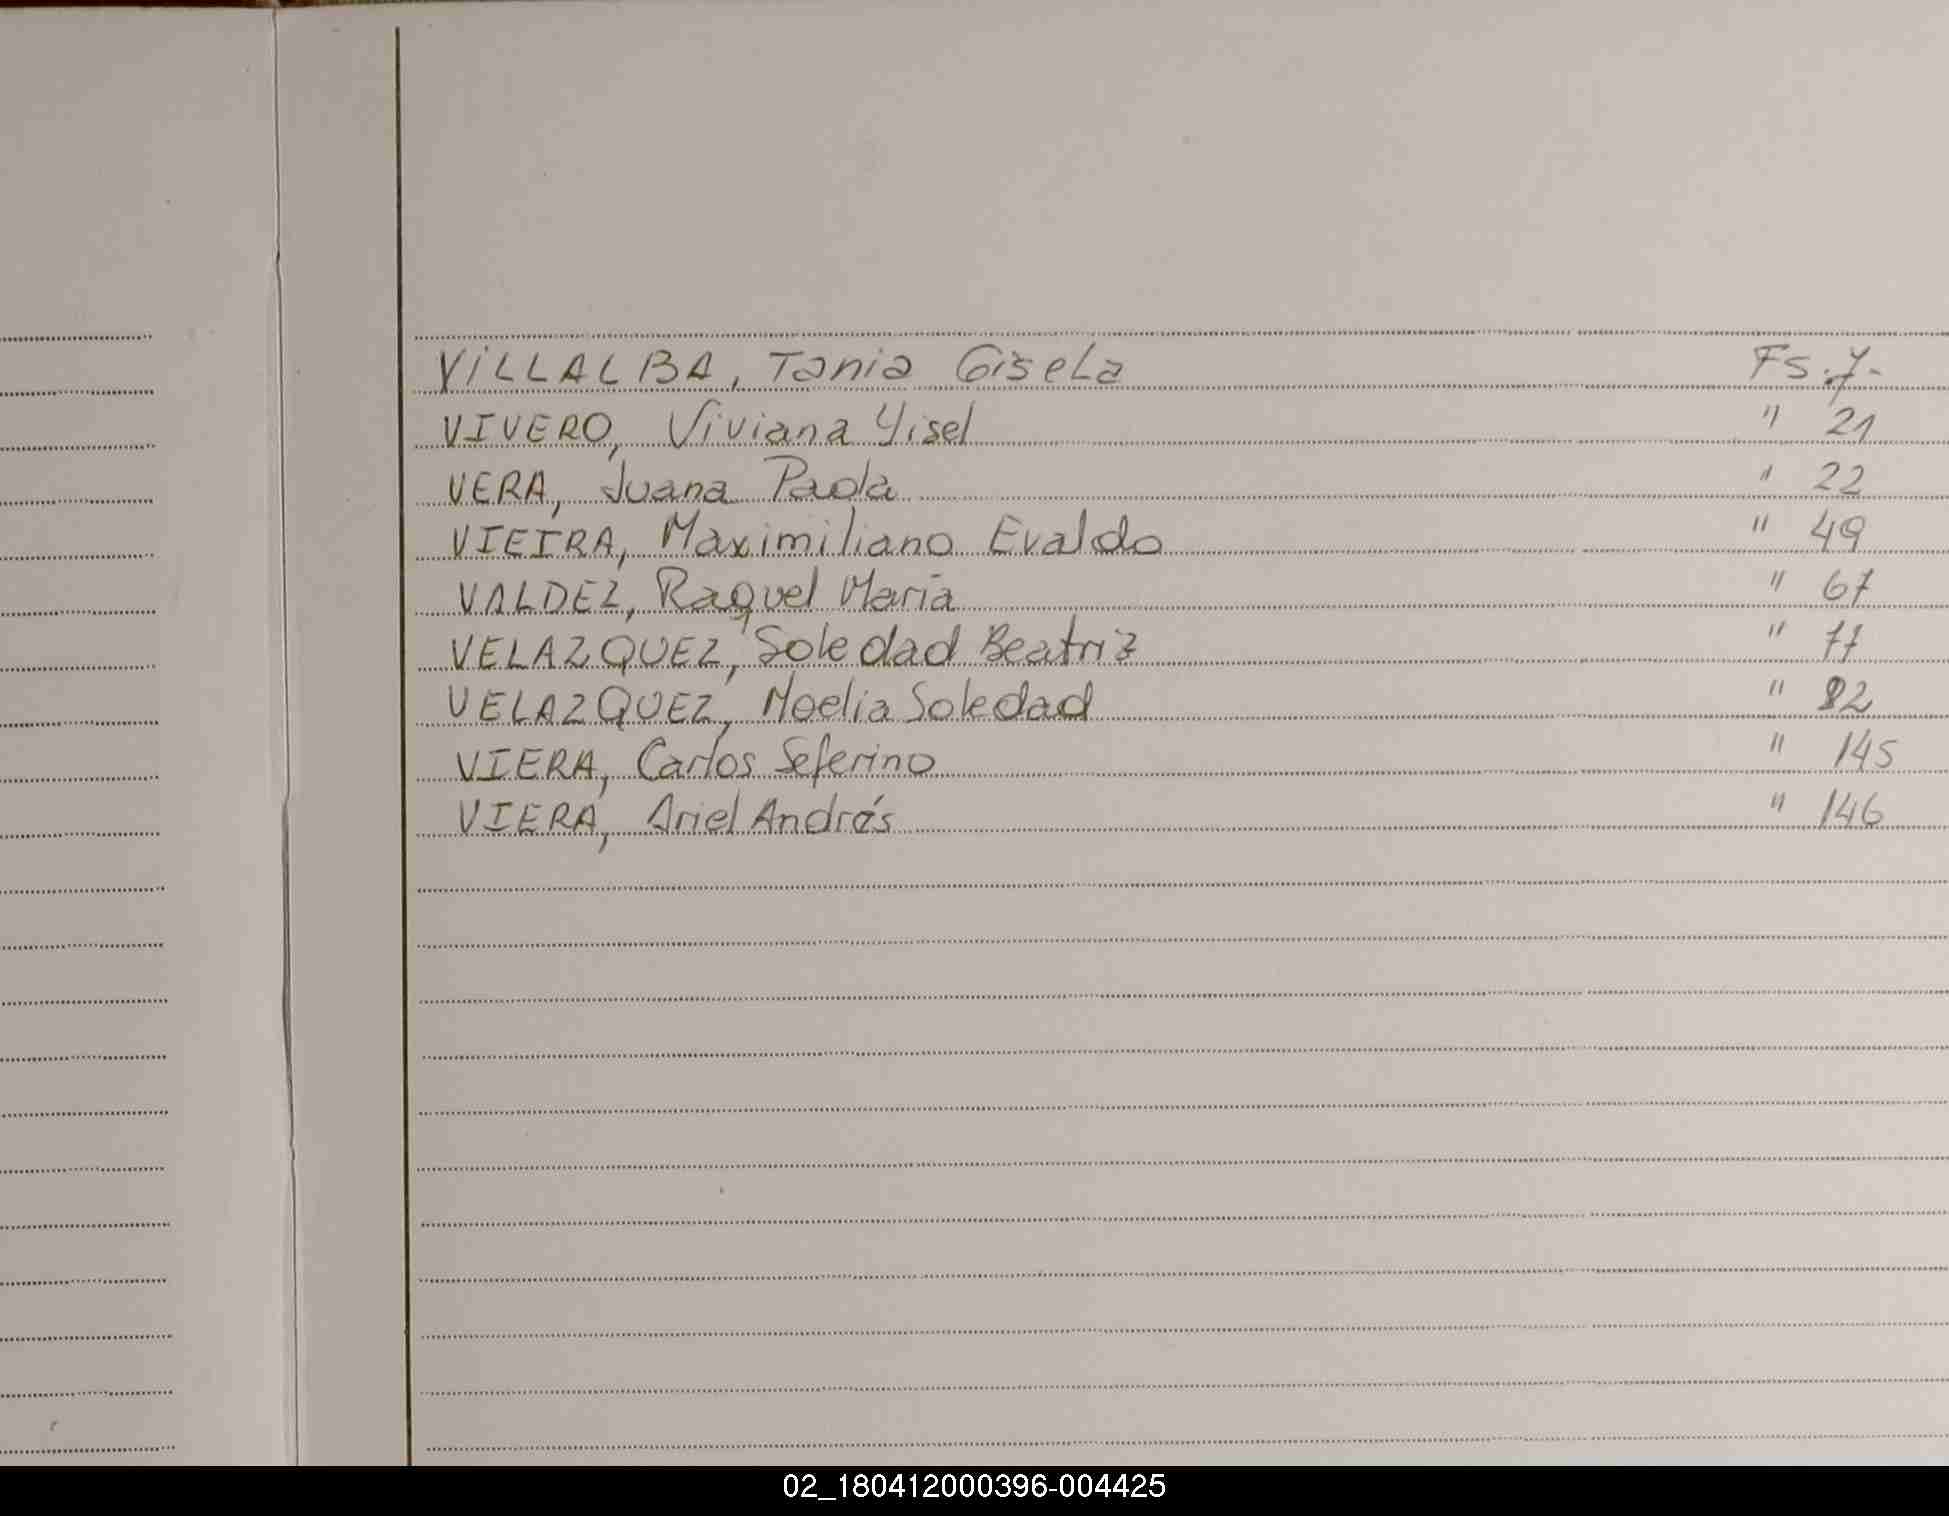 VILLALBA, Tania Gisela Fs. 7.-
VIVERO, Viviana Yisel " 21
VERA, Juana Paola " 22
VIEIRA, Maximiliano Evaldo " 49
VALDEZ, Raquel Maria " 67
VELAZQUEZ, Soledad Beatriz " 77
VELAZQUEZ, Noelia Soledad " 82
VIERA, Carlos Seferino " 145
VIERA, Ariel Andrés " 146
02_180412000396-004425